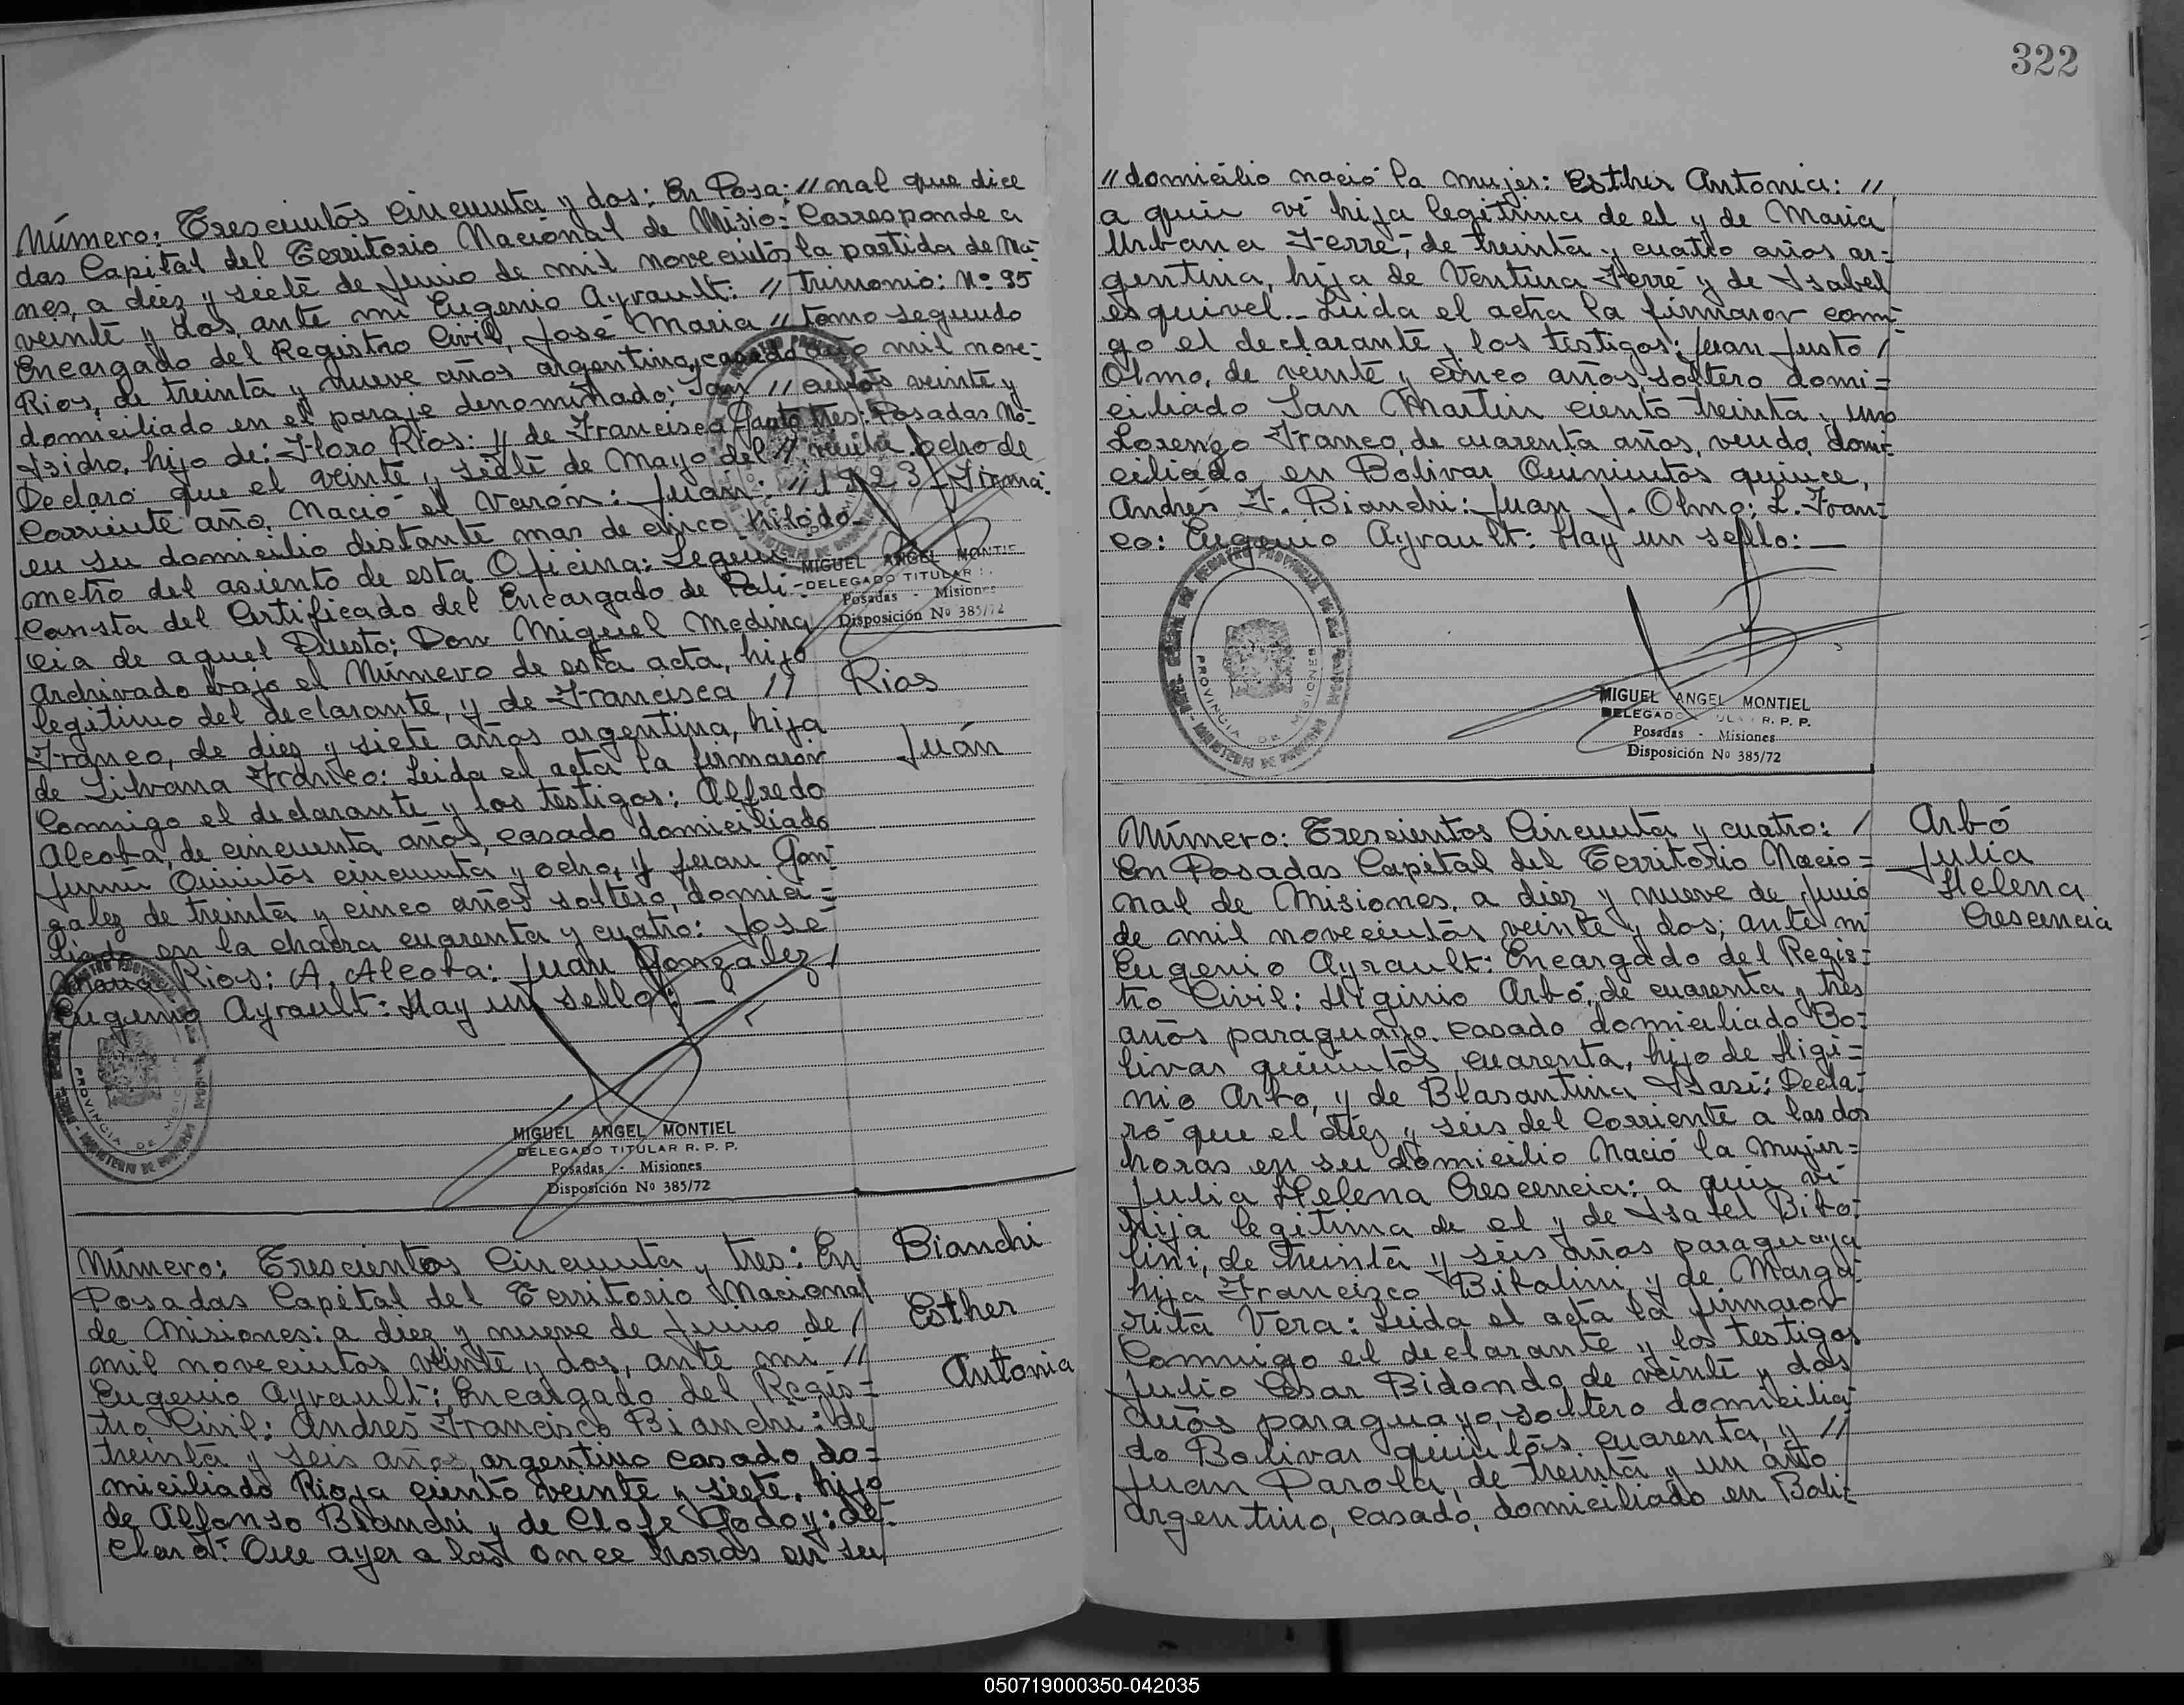 Número: Trescientos Cincuenta y dos: En Posa=
das Capital del Territorio Nacional de Misio=
nes, a diez y siete de Junio de mil novecientos
veinte y dos, ante mi Eugenio Ayrault: //
Encargado del Registro Civil, José Maria //
Rios, de treinta y nueve años argentino, casado
domiciliado en el paraje denominado; San //
Isidro, hijo de: Floro Rios: y de Francisca
Declaró que el veinte y siete de Mayo del //
Corriente año, Nació el Varón: Juan: //
en su domicilio distante mas de cinco kiló
metro del asiento de esta Oficina: Según
Consta del Certificado del Encargado de Poli=
cia de aquel Puesto; Don Miguel Medina
archivado bajo el Número de esta acta, hijo
legitimo del declarante, y de Francisca //
Franco, de diez y siete años argentina, hija
de Silvana Franco: Leida el acta la firmarón
Conmigo el declarante y los testigos; Alfredo
Alcoba, de cincuenta años, casado domiciliado
Junin Quinientos cincuenta y ocho, y Juan Gon=
zalez de treinta y cinco años soltero, domici=
liado en la chacra cuarenta y cuatro: José
Maria Rios: A. Alcoba: Juan Gonzalez /
Eugenio Ayrault: Hay un sello: —
// nal que dice
Corresponde a
la partida de Ma=
trimonio: Nº 95
// tomo segundo
año mil nove=
// cientos veinte y
tres: Posadas No=
// ocho de
// 1923 Firma:
MIGUEL ANGEL MONTIEL
DELEGADO TITULAR
Posadas - Misiones
Disposición Nº 385/72
Rios
Juán
PROVINCIA DE MISIONES
MIGUEL ANGEL MONTIEL
DELEGADO TITULAR R. P. P.
Posadas - Misiones
Disposición Nº 385/72
Número: Trescientos Cincuenta y tres: En
Posadas Capital del Territorio Nacional
de Misiones: a diez y nueve de Junio de /
mil novecientos veinte y dos, ante mi //
Eugenio Ayrault: Encargado del Regis=
tro Civil: Andrés Francisco Bianchi: de
treinta y seis años, argentino casado, do=
miciliado Rioja ciento veinte y siete, hijo
de Alfonso Bianchi y de Clofe Godoy: de=
claró: Que ayer a las once horas en su
Bianchi
Esther
Antonia
322
// domicilio nació la mujer: Esther Antonia: //
a quien ví hija legitima de el y de Maria
Urbana Ferré, de treinta y cuatro años ar=
gentina, hija de Ventura Ferré y de Isabel
esquivel. _ Leida el acta la firmaron conmi=
go el declarante y los testigos; Juan Justo /
Olmo, de veinte y cinco años, soltero domi=
ciliado San Martin ciento treinta y uno
Lorenzo Franco, de cuarenta años, veudo, domi=
ciliado en Bolivar Quinientos quince,
Andrés F. Bianchi: Juan J. Olmo; L. Fran=
co: Eugenio Ayrault: Hay un sello: —
PROVINCIA DE MISIONES
MIGUEL ANGEL MONTIEL
DELEGADO TITULAR R. P. P.
Posadas - Misiones
Disposición Nº 385/72
Número: Trescientos Cincuenta y cuatro: /
En Posadas Capital del Territorio Nacio=
nal de Misiones, a diez y nueve de Junio
de mil novecientos veinte y dos; ante mi
Eugenio Ayrault: Encargado del Regis=
tro Civil: Higinio Arbó, de cuarenta y tres
años paraguayo, casado domiciliado Bo=
livar quinientos cuarenta, hijo de Higi=
nio Arbo, y de Blasantina Isasi: Decla=
ró que el diez y seis del Corriente a las dos
horas en su domicilio Nació la Mujer=
Julia Helena Crescencia: a quien ví
hija legitima de el y de Isabel Bibo=
lini, de treinta y seis años paraguaya
hija Francisco Bibolini y de Marga=
rita Vera: Leida el acta la firmaron
Conmigo el declarante y los testigos
Julio Cesar Bidondo, de veinte y dos
años paraguayo, soltero domicilia=
do Bolivar quinientos cuarenta, y //
Juan Parola, de treinta y un año
argentino, casado, domiciliado en Boli=
Arbó
Julia
Helena
Crescencia
050719000350-042035